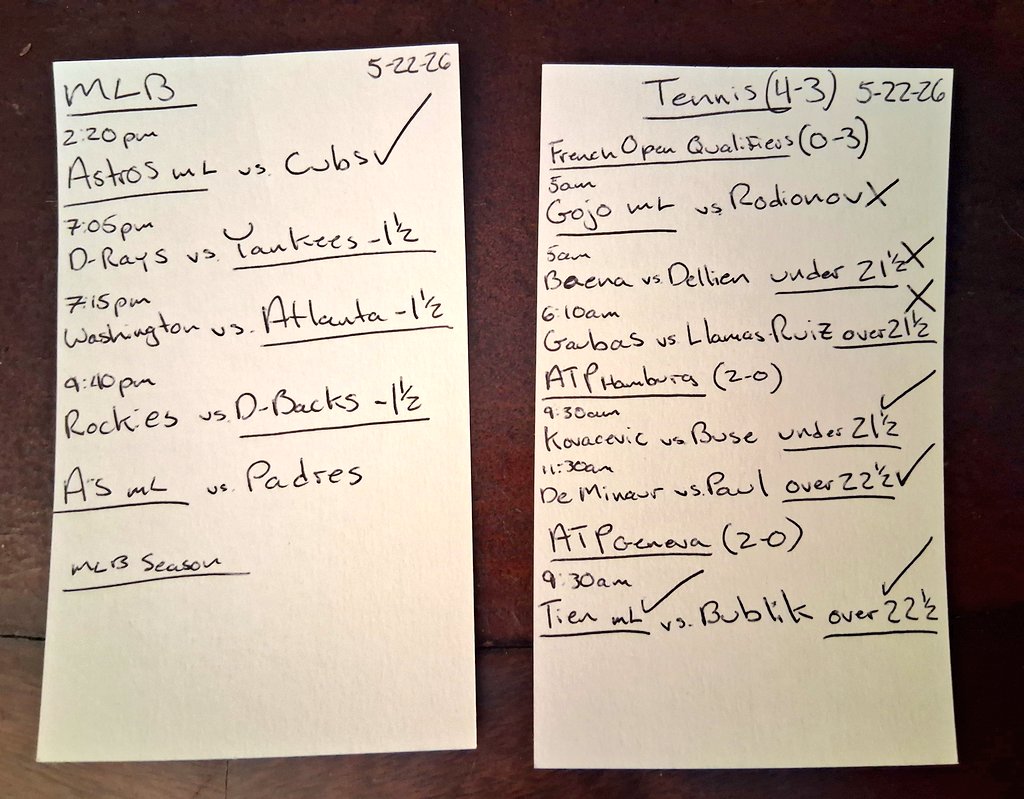 MLB 5-22-26
2:20pm
Astros mL vs. Cubs ✓
7:05pm
D-Rays vs. Yankees -1½
7:15pm
Washington vs. Atlanta -1½
9:40pm
Rockies vs. D-Backs -1½
A's mL vs. Padres
MLB Season
Tennis (4-3) 5-22-26
French Open Qualifiers (0-3)
5am
Gojo mL vs Rodionov X
5am
Baena vs. Dellien under 21½ X
6:10am
Gaubas vs Llamas-Ruiz over 21½ X
ATP Hamburg (2-0)
9:30am
Kovacevic vs Buse under 21½ ✓
11:30am
De Minaur vs. Paul over 22½ ✓
ATP Geneva (2-0)
9:30am
Tien mL ✓ vs. Bublik over 22½ ✓